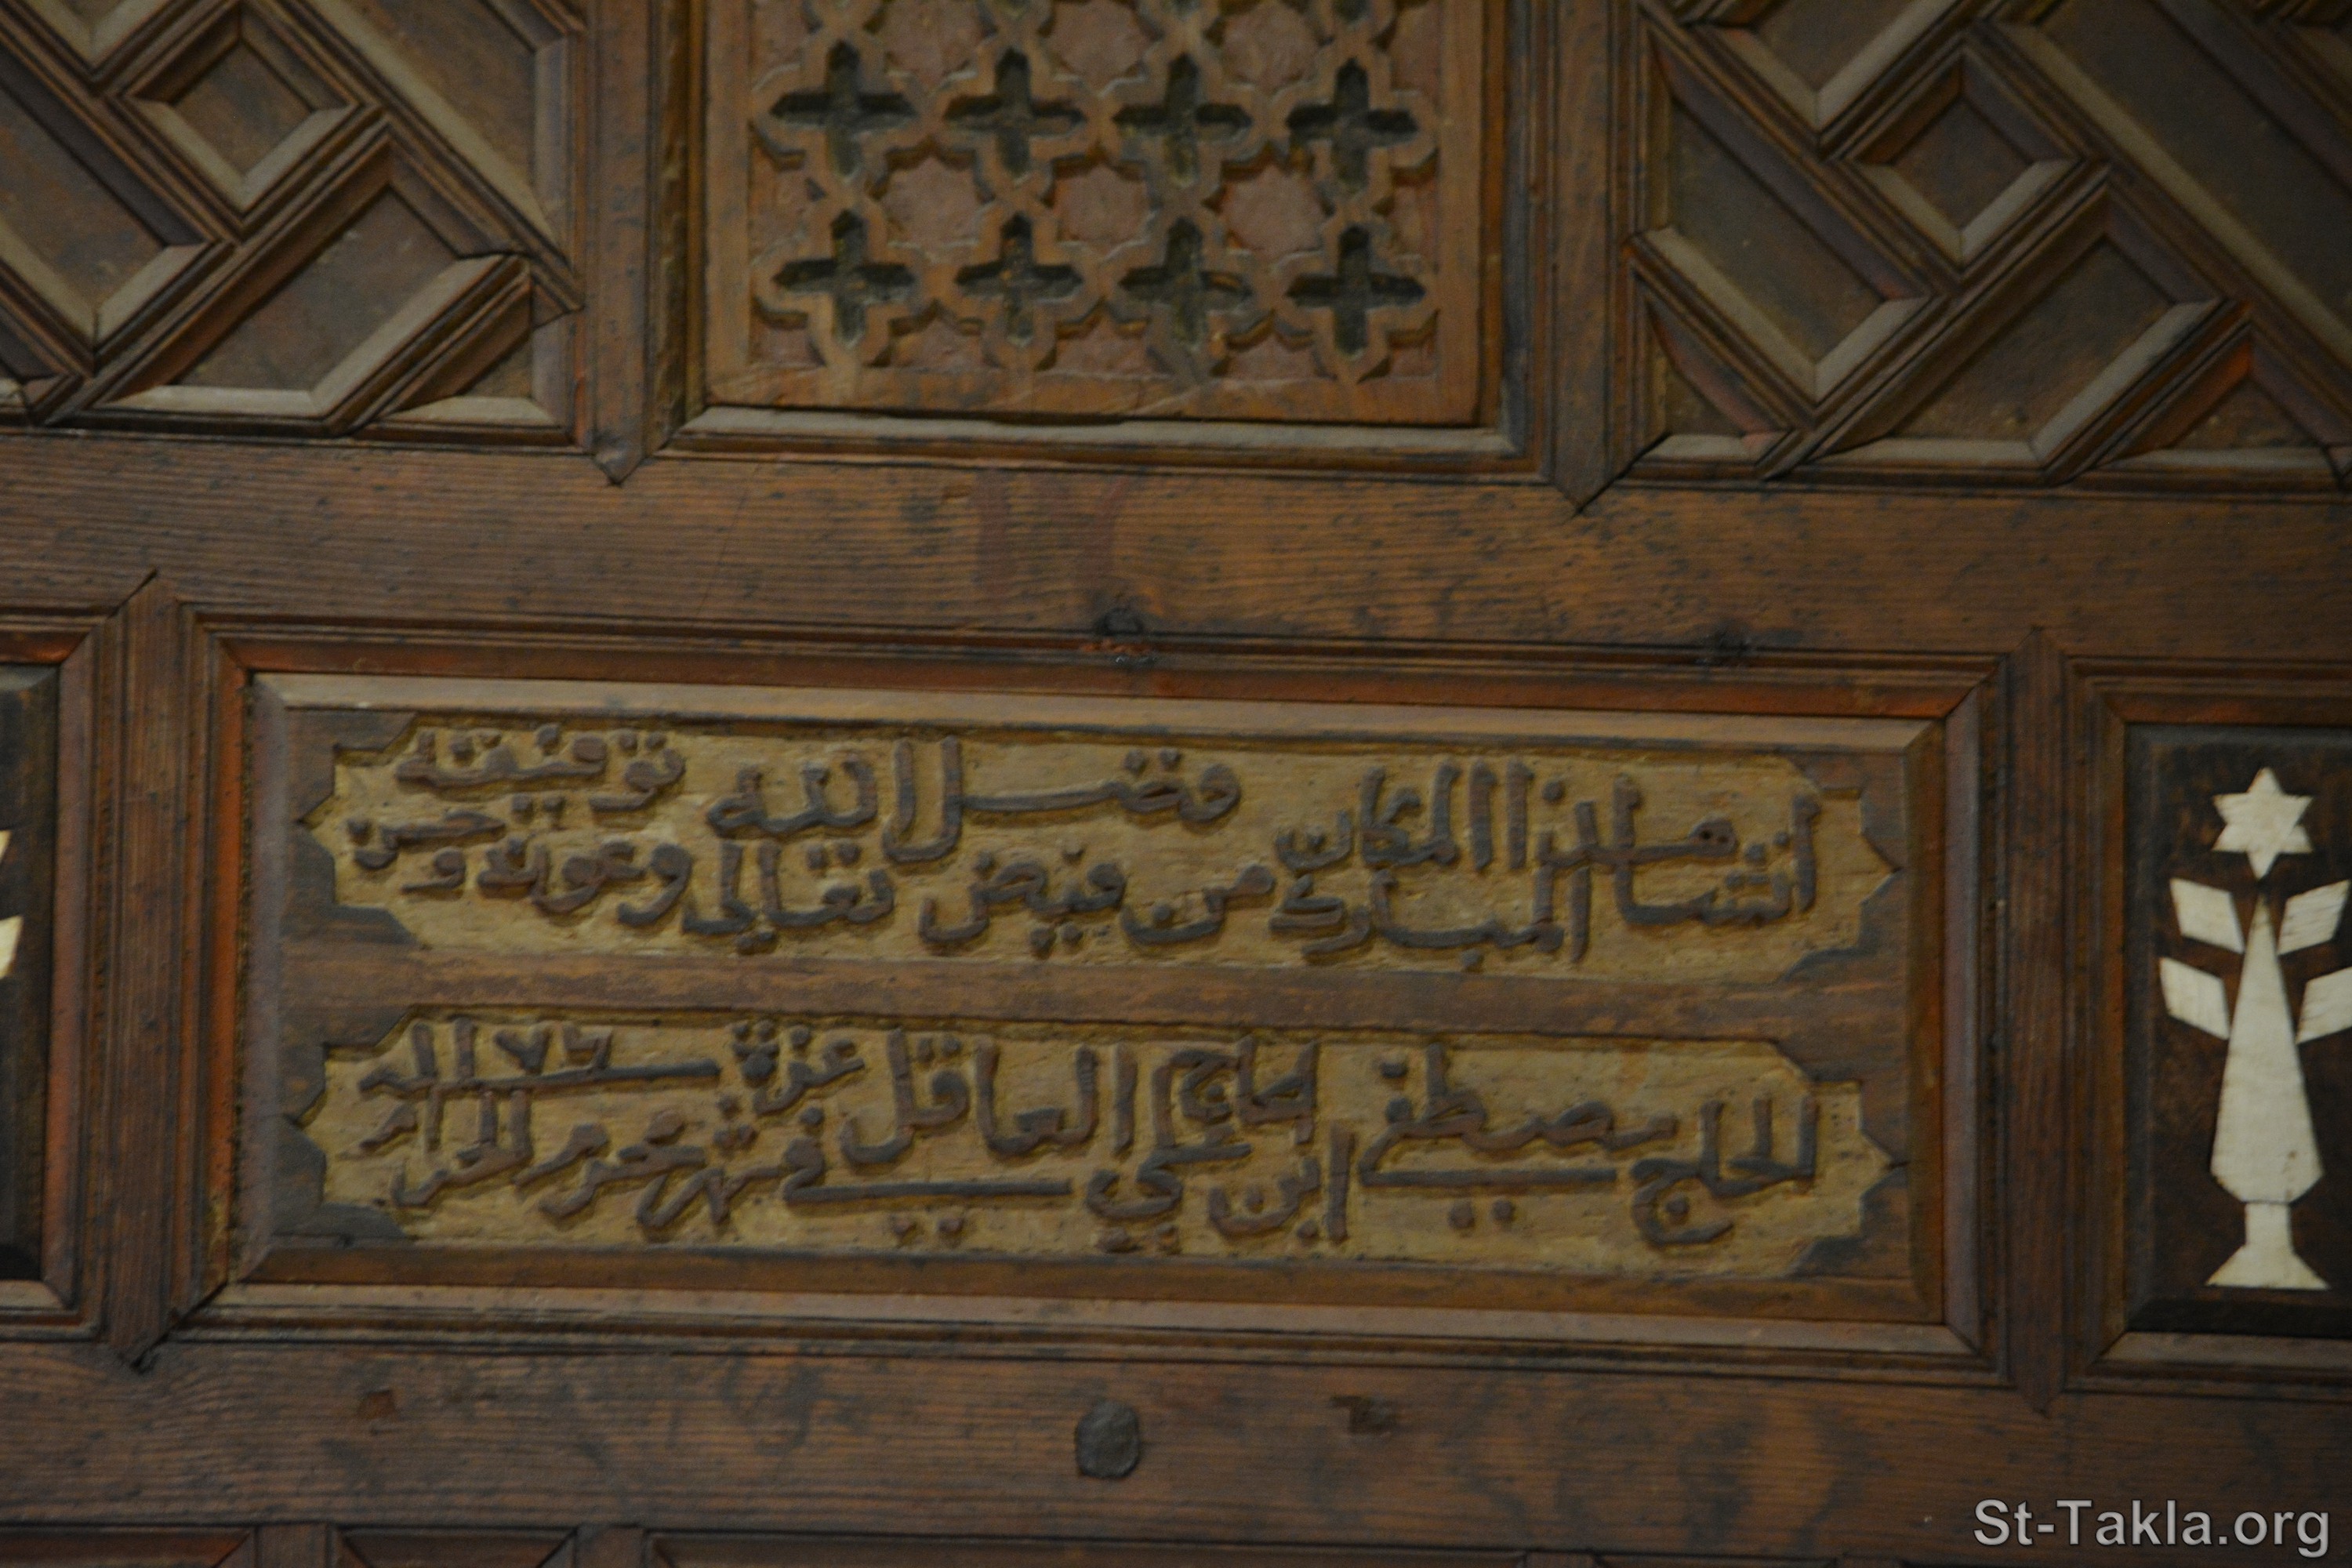 انشا هذا المكان المبارك من فيض فضل الله تعالى وعونه وحسن توفيقه
الحاج مصطفى ابن الحاج علي العاقل في غرة شهر محرم الحرام ١١٧٦
St-Takla.org